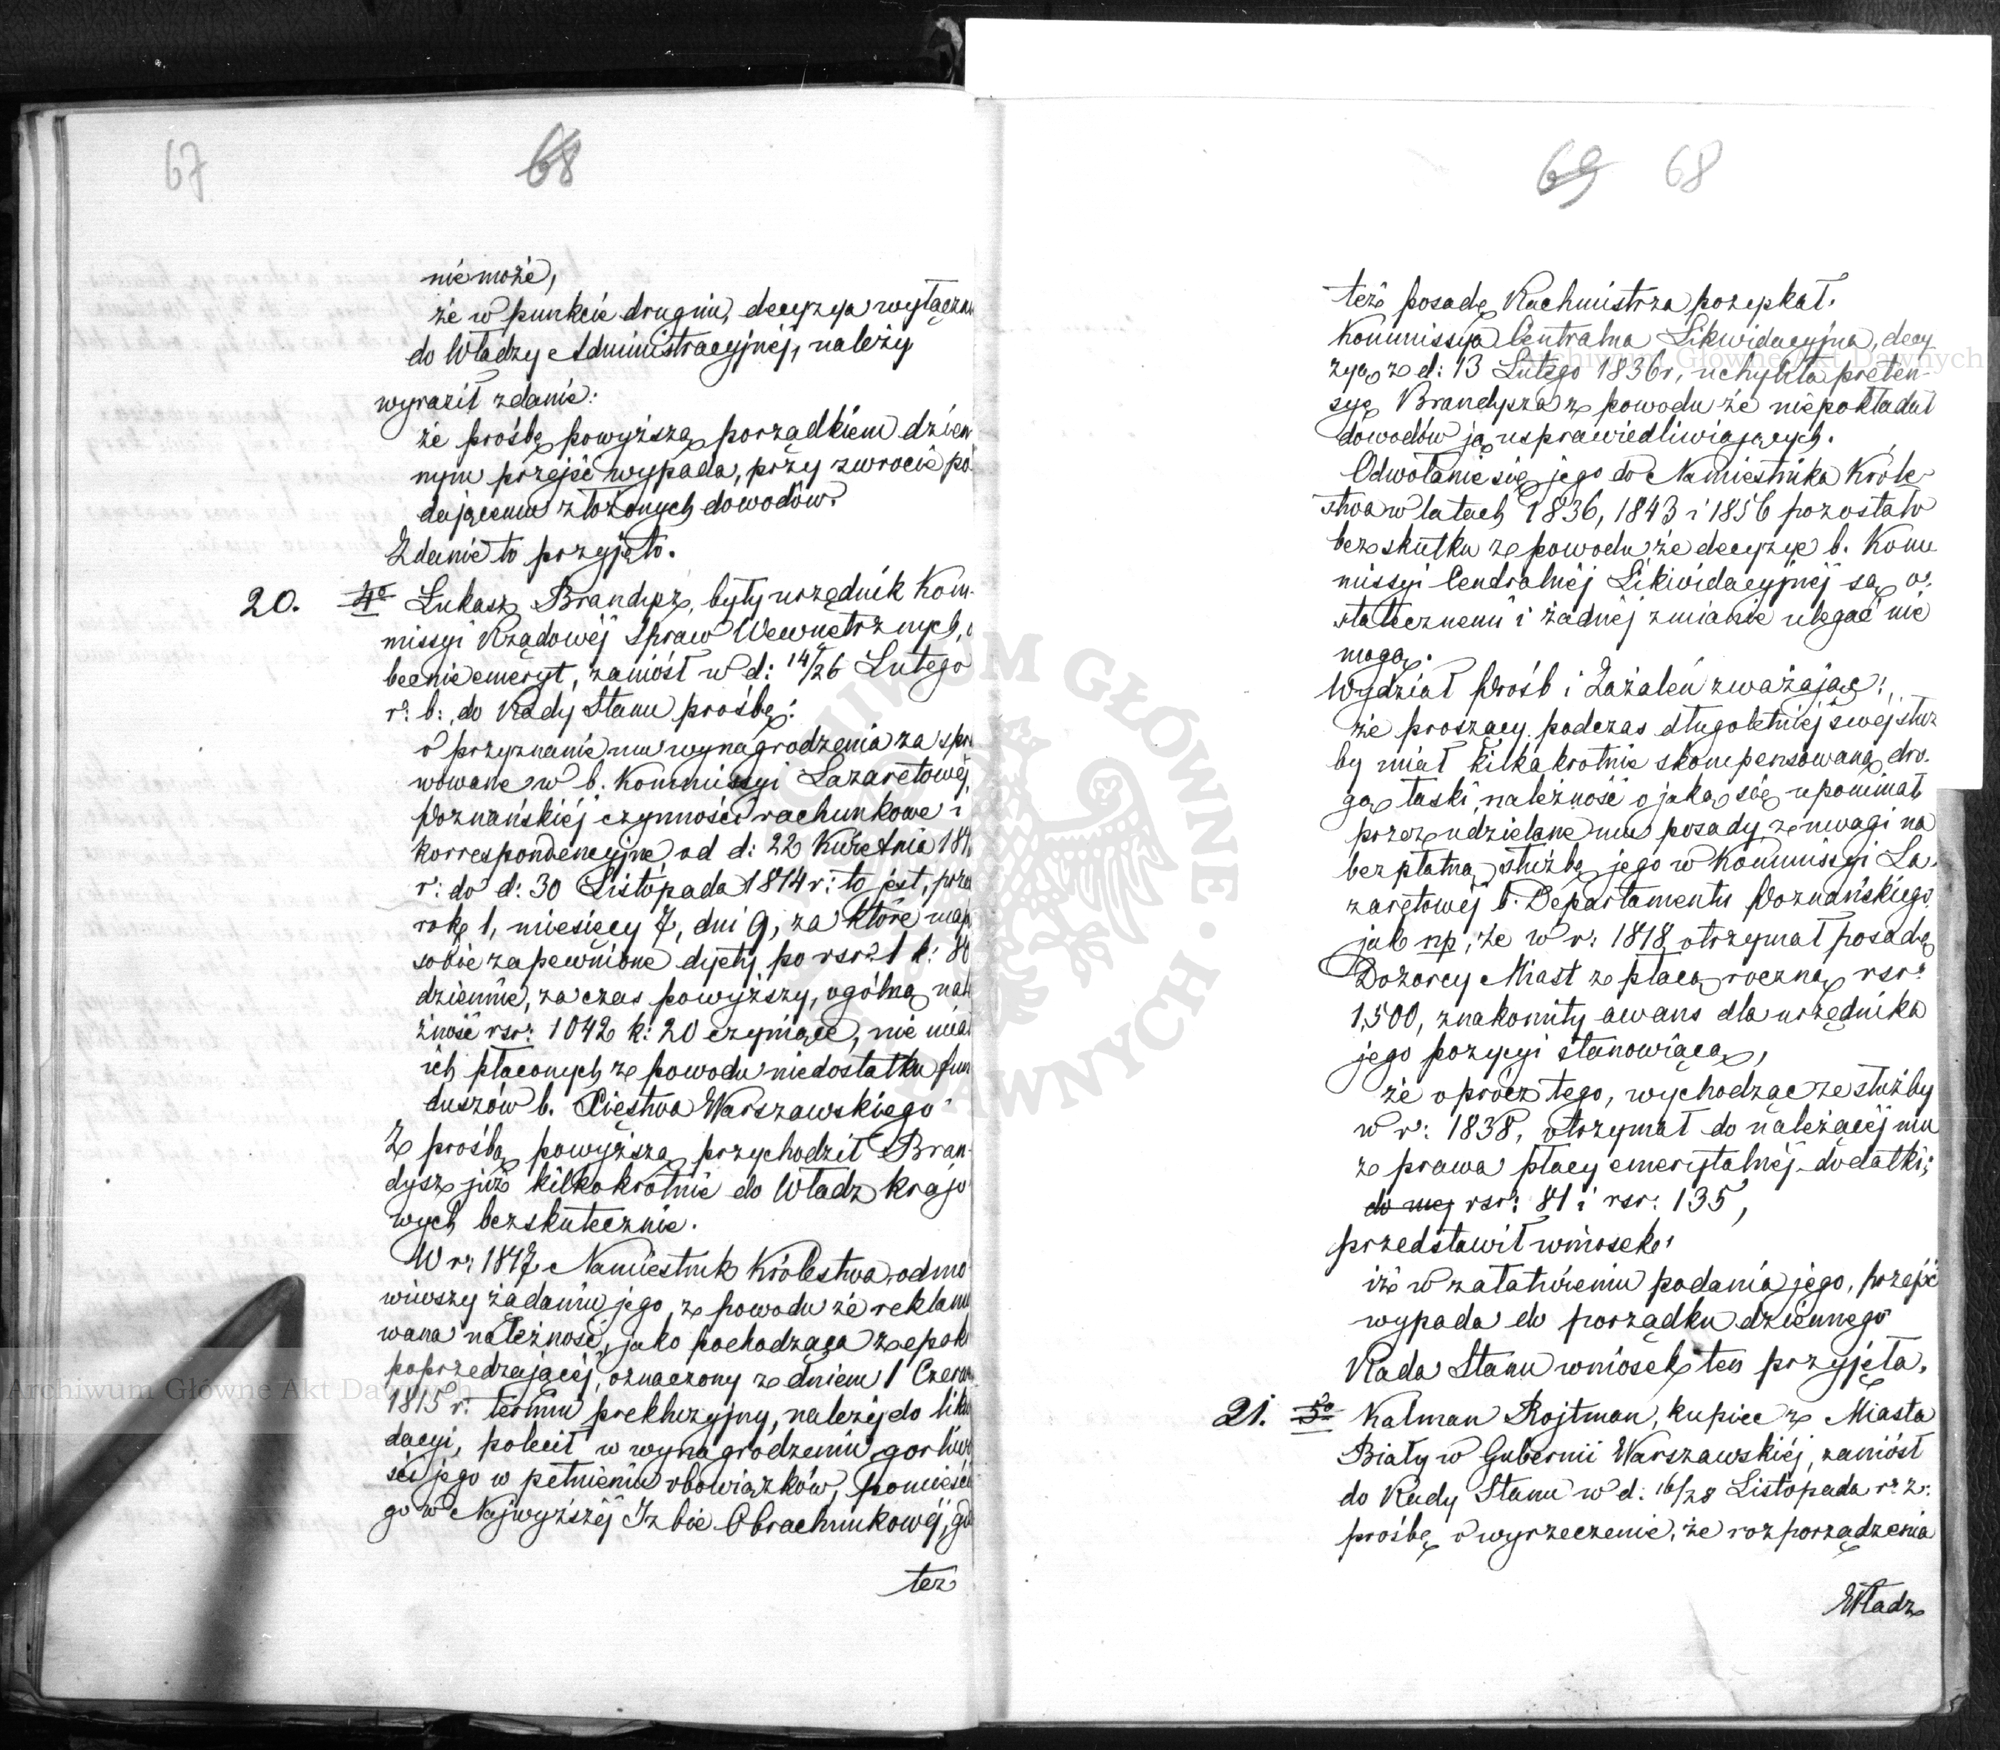 67
68
nie może,
że w punkcie drugim, decyzya wyłączn
do Władzy Administracyjnéj, należy
wyraził zdanie:
że prośbę powyższą porządkiem dzien
nym przejść wypada, przy zwrocie po
dającemu złożonych dowodów.
Zdanie to przyjęto.
20. 4o Łukasz Brandysz, były urzędnik Kom-
missyi Rządowéj Spraw Wewnętrznych, o
becnie emeryt, zaniósł w d: 14/26 Lutego
r: b:, do Rady Stanu prośbę:
o przyznanie mu wynagrodzenia za spra
wowane w b. Kommissyi Lazaretowéj
Poznańskiéj czynności rachunkowe i
korrespondencyjne od d: 22 Kwietnia 181
r: do d: 30 Listopada 1814 r: to jest, prze
rok 1, miesięcy 7, dni 9, za które mają
sobie zapewnione dyety po rsr 1 k: 80
dziennie, za czas powyższy, ogólną nal
żność rsr: 1042 k: 20 czyniące, nie miał
ich płaconych z powodu niedostatku fun
duszów b. Xięstwa Warszawskiego
Z prośbą powyższą przychodził Bran-
dysz już kilkokrotnie do Władz krajo
wych bezskutecznie.
W r: 1847 Namiestnik Królestwa odmó
wiwszy żądaniu jego, z powodu że reklamo
wana należność, jako pochodząca z epoki
poprzedzającéj, oznaczony z dniem 1 Czerw
1815 r. termin prekluzyjny, należy do likw
dacyi, polecił w wynagrodzeniu gorliwo
ści jego w pełnieniu obowiązków, pomieści
go w Najwyższéj Izbie Obrachunkowéj, gd
też
69 68
też posadę Rachmistrza pozyskał.
Kommissyja Centralna Likwidacyjna, decy
zyą z d: 13 Lutego 1836 r, uchyliła preten-
syę Brandysza z powodu że niepokładał
dowodów ją usprawiedliwiających.
Odwołanie się jego do Namiestnika Króle-
stwa w latach 1836, 1843 i 1856 pozostało
bez skutku z powodu, że decyzye b. Kom
missyi Centralnéj Likwidacyjnéj są o-
statecznemi i żadnéj zmianie ulegać nie
mogą.
Wydział Próśb i Zażaleń zważając:
że proszący podczas długoletniéj swéj służ
by miał kilkakrotnie skompensowaną dro-
gą łaski, należność o jaką się upominał,
przez udzielane mu posady, z uwagi na
bezpłatną służbę jego w Kommissyi La-
zaretowéj b. Departamentu Poznańskiego,
jak np, że w r: 1818 otrzymał posadę
Dozorcy Miast z płacą roczną rsr:
1,500, znakomity awans dla urzędnika
jego pozycyi stanowiącą,
że oprócz tego, wychodząc ze służby
w r: 1838, otrzymał do należącéj mu
z prawa płacy emerytalnéj dodatki;
do niej rsr: 81 i rsr: 135,
przedstawił wniosek:
iż w załatwieniu podania jego, przejść
wypada do porządku dziennego
Rada Stanu wniosek ten przyjęła.
21. 5o Kalman Rojtman, kupiec z Miasta
Biały w Gubernii Warszawskiéj, zaniósł
do Rady Stanu w d. 16/28 Listopada r: z:
prośbę o wyrzeczenie, że rozporządzenia
Władz
Archiwum Główne Akt Dawnych
Archiwum Główne Akt Dawnych
ARCHIWUM GŁÓWNE AKT DAWNYCH